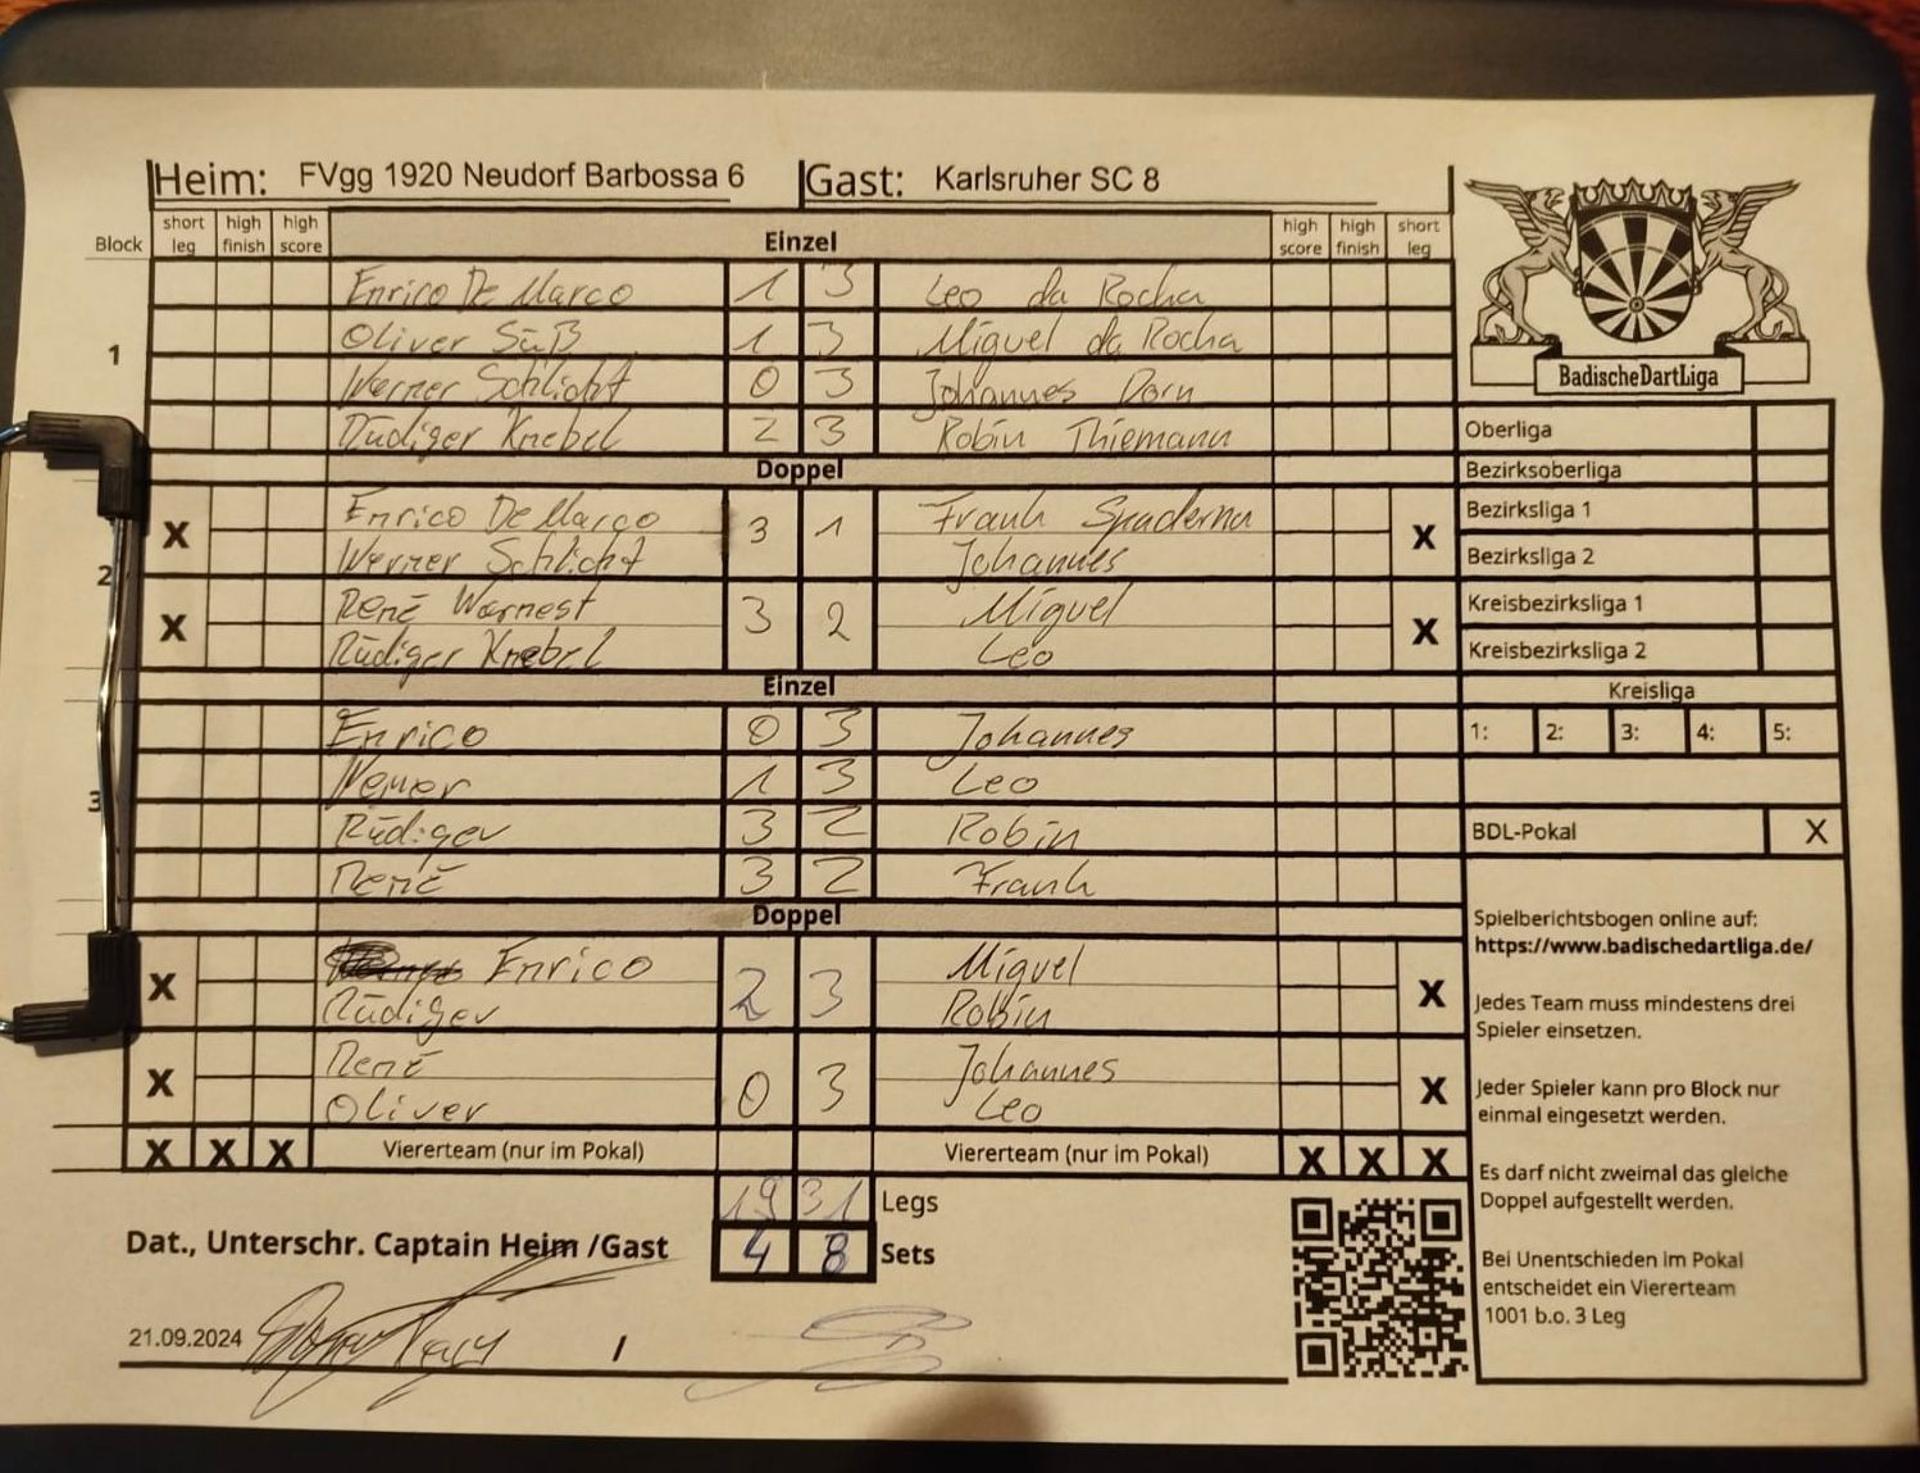 Heim: FVgg 1920 Neudorf Barbossa 6 Gast: Karlsruher SC 8
Block short leg high finish high score Einzel high score high finish short leg
1
Enrico De Marco 1 3 Leo da Rocha
Oliver Süß 1 3 Miguel da Rocha
Werner Schlicht 0 3 Johannes Dorn
Rüdiger Knebel 2 3 Robin Thiemann
Doppel
2
X Enrico De Marco 3 1 Frank Spaderna X
Werner Schlicht Johannes
X René Warnest 3 2 Miguel X
Rüdiger Knebel Leo
Einzel
3
Enrico 0 3 Johannes
Werner 1 3 Leo
Rüdiger 3 2 Robin
René 3 2 Frank
Doppel
X Enrico 2 3 Miguel X
Rüdiger Robin
X René 0 3 Johannes X
Oliver Leo
X X X Viererteam (nur im Pokal) Viererteam (nur im Pokal) X X X
19 31 Legs
Dat., Unterschr. Captain Heim /Gast 4 8 Sets
21.09.2024 /
BadischeDartLiga
Oberliga
Bezirksoberliga
Bezirksliga 1
Bezirksliga 2
Kreisbezirksliga 1
Kreisbezirksliga 2
Kreisliga
1: 2: 3: 4: 5:
BDL-Pokal X
Spielberichtsbogen online auf:
https://www.badischedartliga.de/
Jedes Team muss mindestens drei
Spieler einsetzen.
Jeder Spieler kann pro Block nur
einmal eingesetzt werden.
Es darf nicht zweimal das gleiche
Doppel aufgestellt werden.
Bei Unentschieden im Pokal
entscheidet ein Viererteam
1001 b.o. 3 Leg